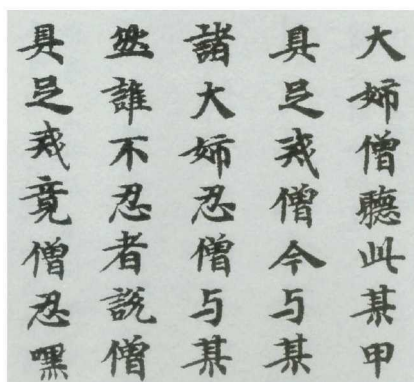 大姉僧聽此某甲
具足戒僧今与某
諸大姉忍僧与某
然誰不忍者說僧
具足戒竟僧忍嘿